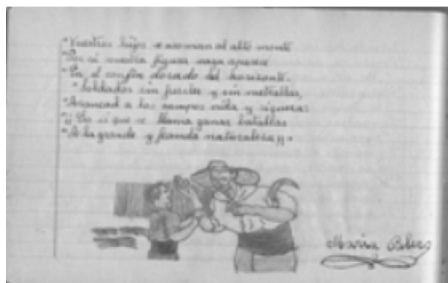 "Vuestros hijos se asoman al alto monte
"Por si vuestra figura vaga aparece
"En el confín dorado del horizonte.
"Soldados sin fusiles y sin metrallas,
"Arrancad a los campos vida y riqueza:
"¡¡Eso sí que se llama ganar batallas
"A la grande y fecunda naturaleza!!"
María